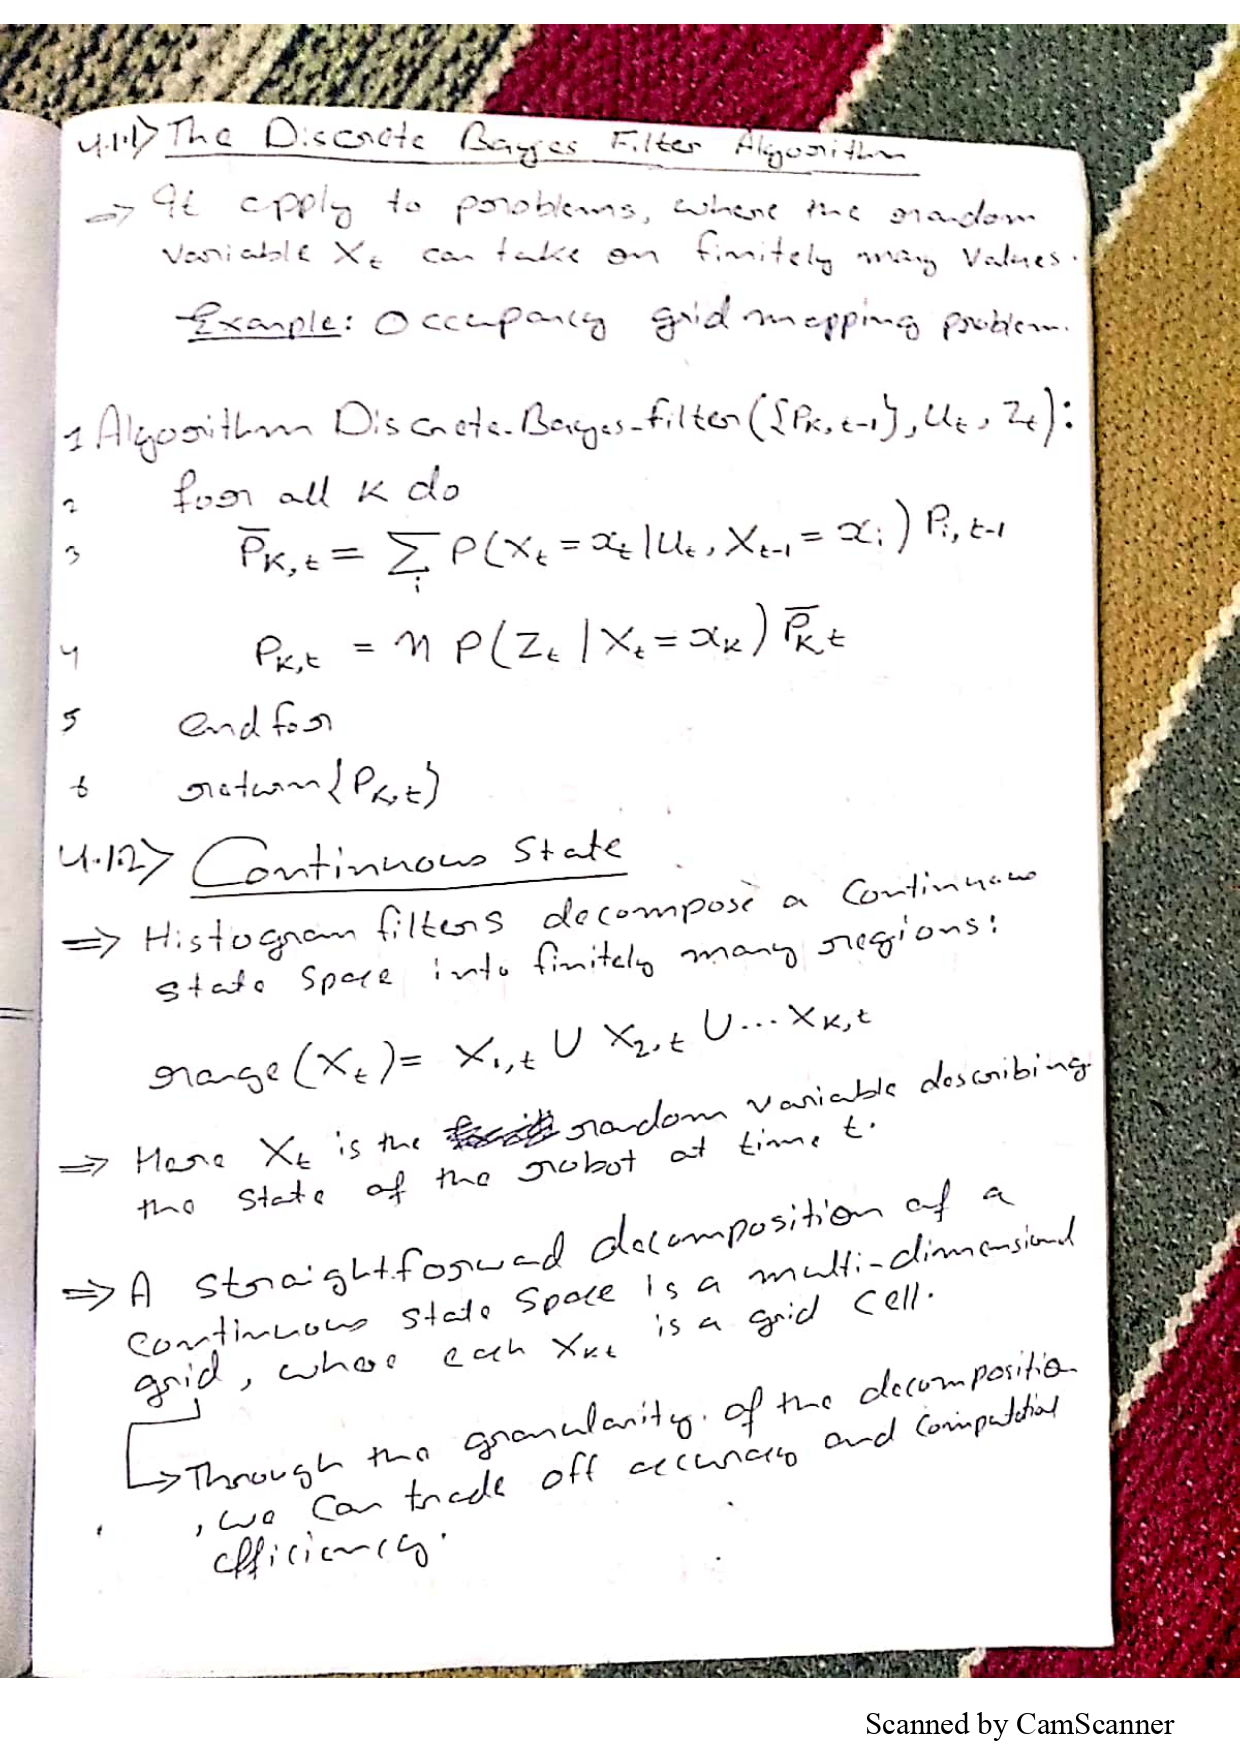 4.1.1> The Discrete Bayes Filter Algorithm
⇒ It apply to problems, where the random
variable Xt can take on finitely many values.
Example: Occupancy grid mapping problem.
1 Algorithm Discrete-Bayes-filter({Pk,t-1}, Ut, Zt):
2 for all k do
3 P̅k,t = Σi P(Xt = xt | Ut, Xt-1 = xi) Pi,t-1
4 Pk,t = η P(Zt | Xt = xk) P̅k,t
5 end for
6 return {Pk,t}
4.1.2> Continuous State
⇒ Histogram filters decompose a Continuous
state space into finitely many regions:
range(Xt) = X1,t ∪ X2,t ∪ ... XK,t
⇒ Here Xt is the random variable describing
the state of the robot at time t.
⇒ A straightforward decomposition of a
continuous state space is a multi-dimensional
grid, where each Xkt is a grid cell.
→ Through the granularity. of the decomposition
, we can trade off accuracy and computational
efficiency.
Scanned by CamScanner